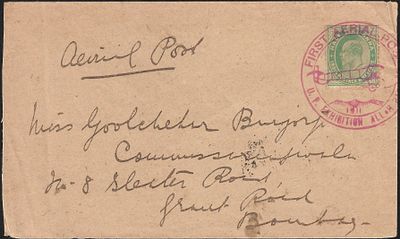 Aerial Post
FIRST AERIAL POST
1911
U.P. EXHIBITION ALLAH
Miss Goolcheher Burjorji
No 8 Slater Road
Grant Road
Bombay